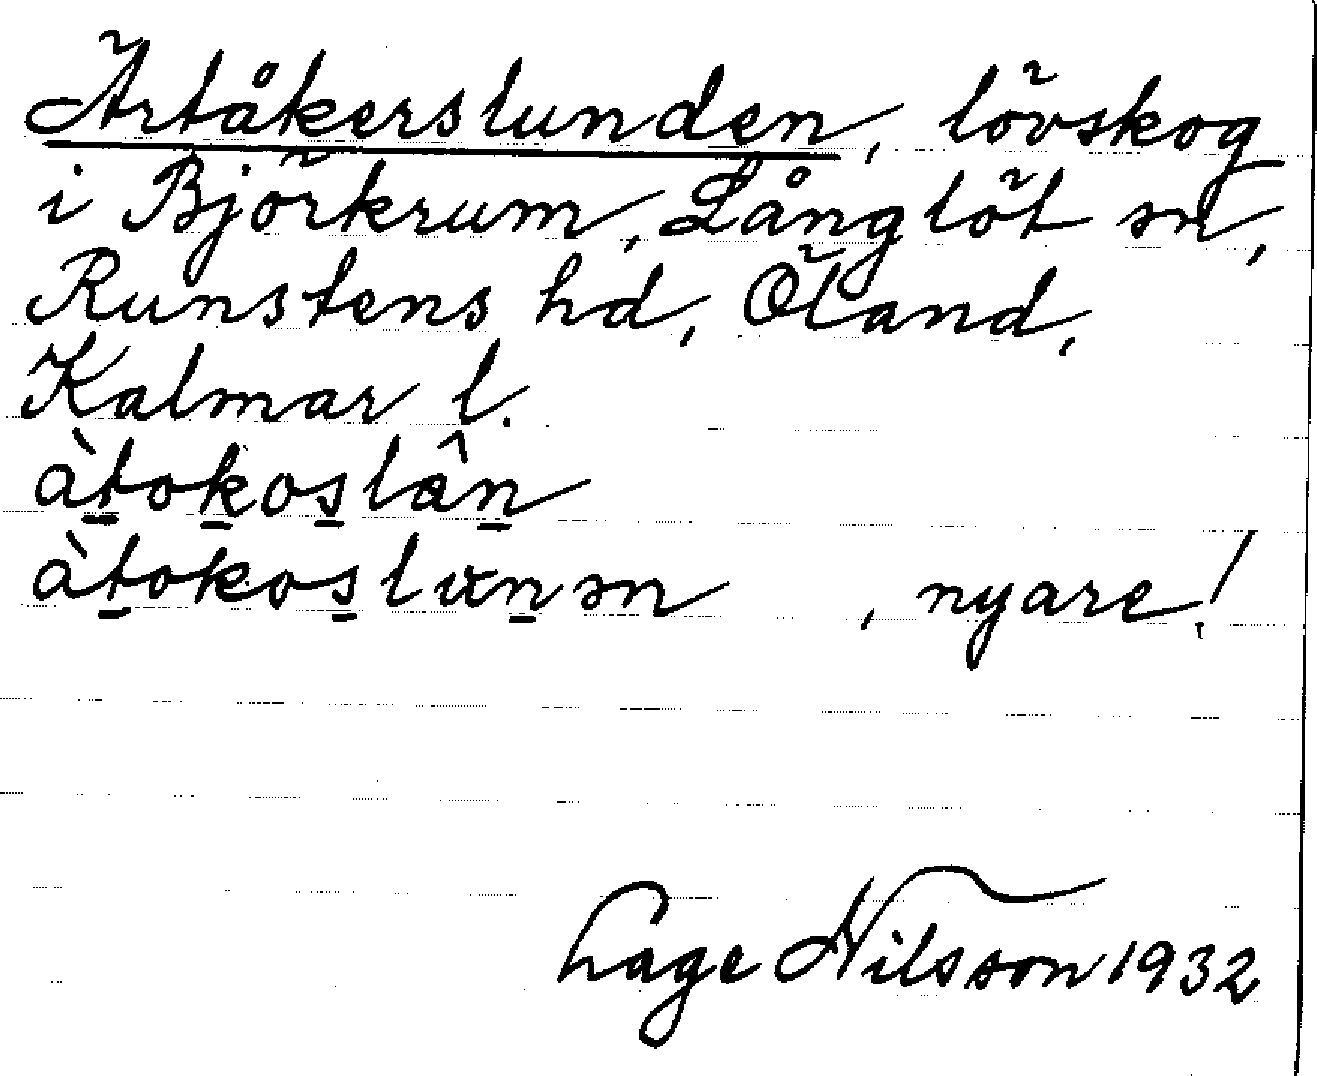 Ärtåkerslunden, lövskog
i Björkrum, Långlöt sn,
Runstens hd, Öland,
Kalmar l.
àtokoslân
àtokoslunən, nyare!
Lage Nilsson 1932